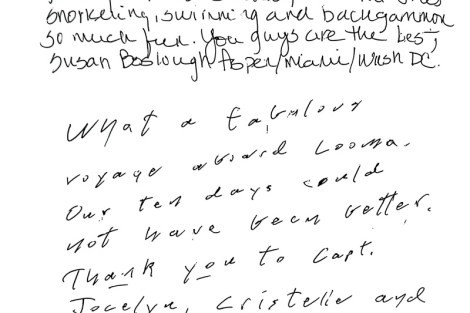 snorkeling, swimming and backgammon
so much fun. You guys are the best,
Susan Boslough Aspen/Miami/Wash DC.
What a fabulous
voyage aboard Looma.
Our ten days could
not have been better.
Thank you to Capt.
Jocelyn, Cristelle and